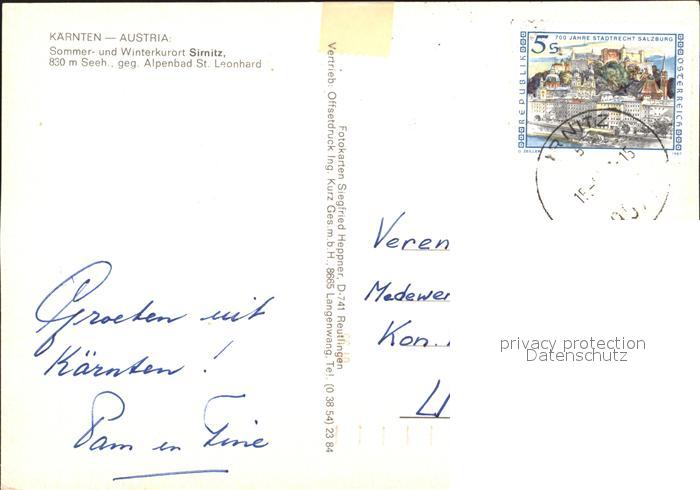 KÄRNTEN — AUSTRIA:
Sommer- und Winterkurort Sirnitz,
830 m Seeh., geg. Alpenbad St. Leonhard
Groeten uit
Kärnten !
Pam en Tine
Fotokarten Siegfried Heppner, D-741 Reutlingen
Vertrieb: Offsetdruck Ing. Kurz Ges.m.b.H., 8665 Langenwang, Tel. (0 38 54) 23 84
5 S
700 JAHRE STADTRECHT SALZBURG
REPUBLIK
ÖSTERREICH
1987
Veren
Medewer
Kon.
privacy protection
Datenschutz